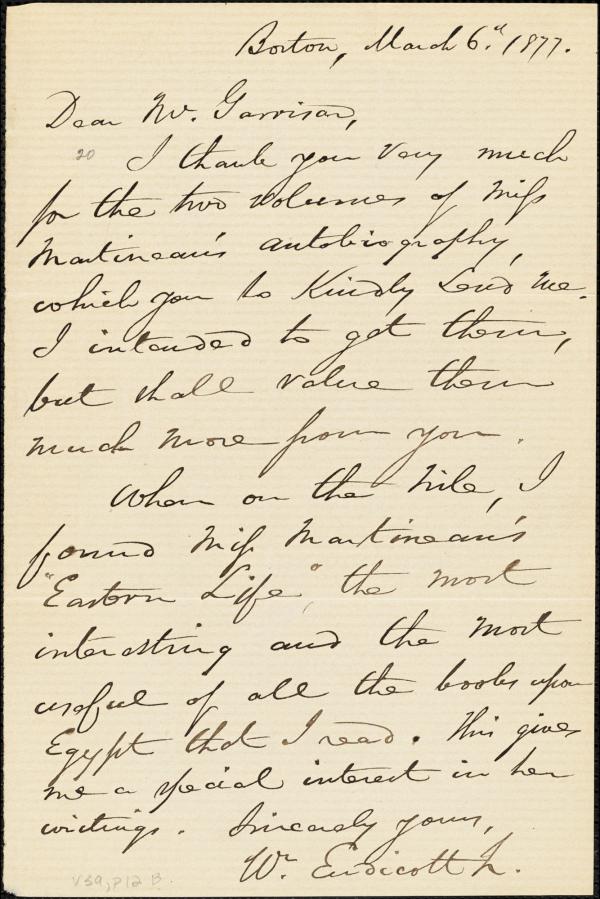 Boston, March 6th 1877.
Dear Mr. Garrison,
20
I thank you very much
for the two volumes of Miss
Martineau's autobiography,
which you so kindly send me.
I intended to get them,
but shall value them
much more from you.
When on the Nile, I
found Miss Martineau's
"Eastern Life", the most
interesting and the most
useful of all the books upon
Egypt that I read. This gives
me a special interest in her
writings. Sincerely yours,
Wm. Endicott Jr.
V39, p12 B.